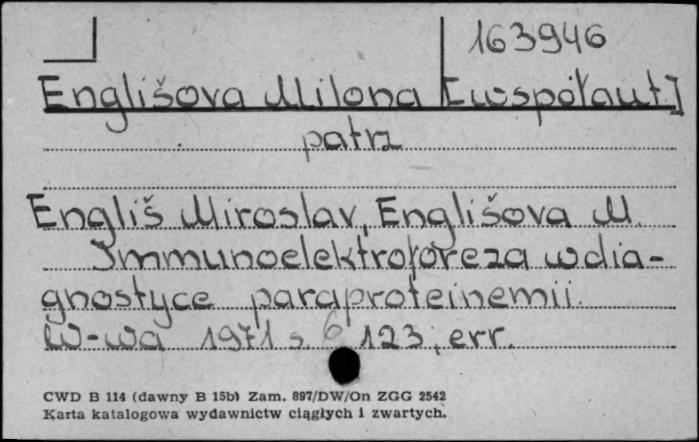 163946
Englišova Milona [współaut]
patrz
Engliš Miroslav, Englišova M.
Immunoelektroforeza w dia-
gnostyce paraproteinemii.
W-wa 1971 s. 6 123, err.
CWD B 114 (dawny B 15b) Zam. 897/DW/On ZGG 2542
Karta katalogowa wydawnictw ciągłych i zwartych.